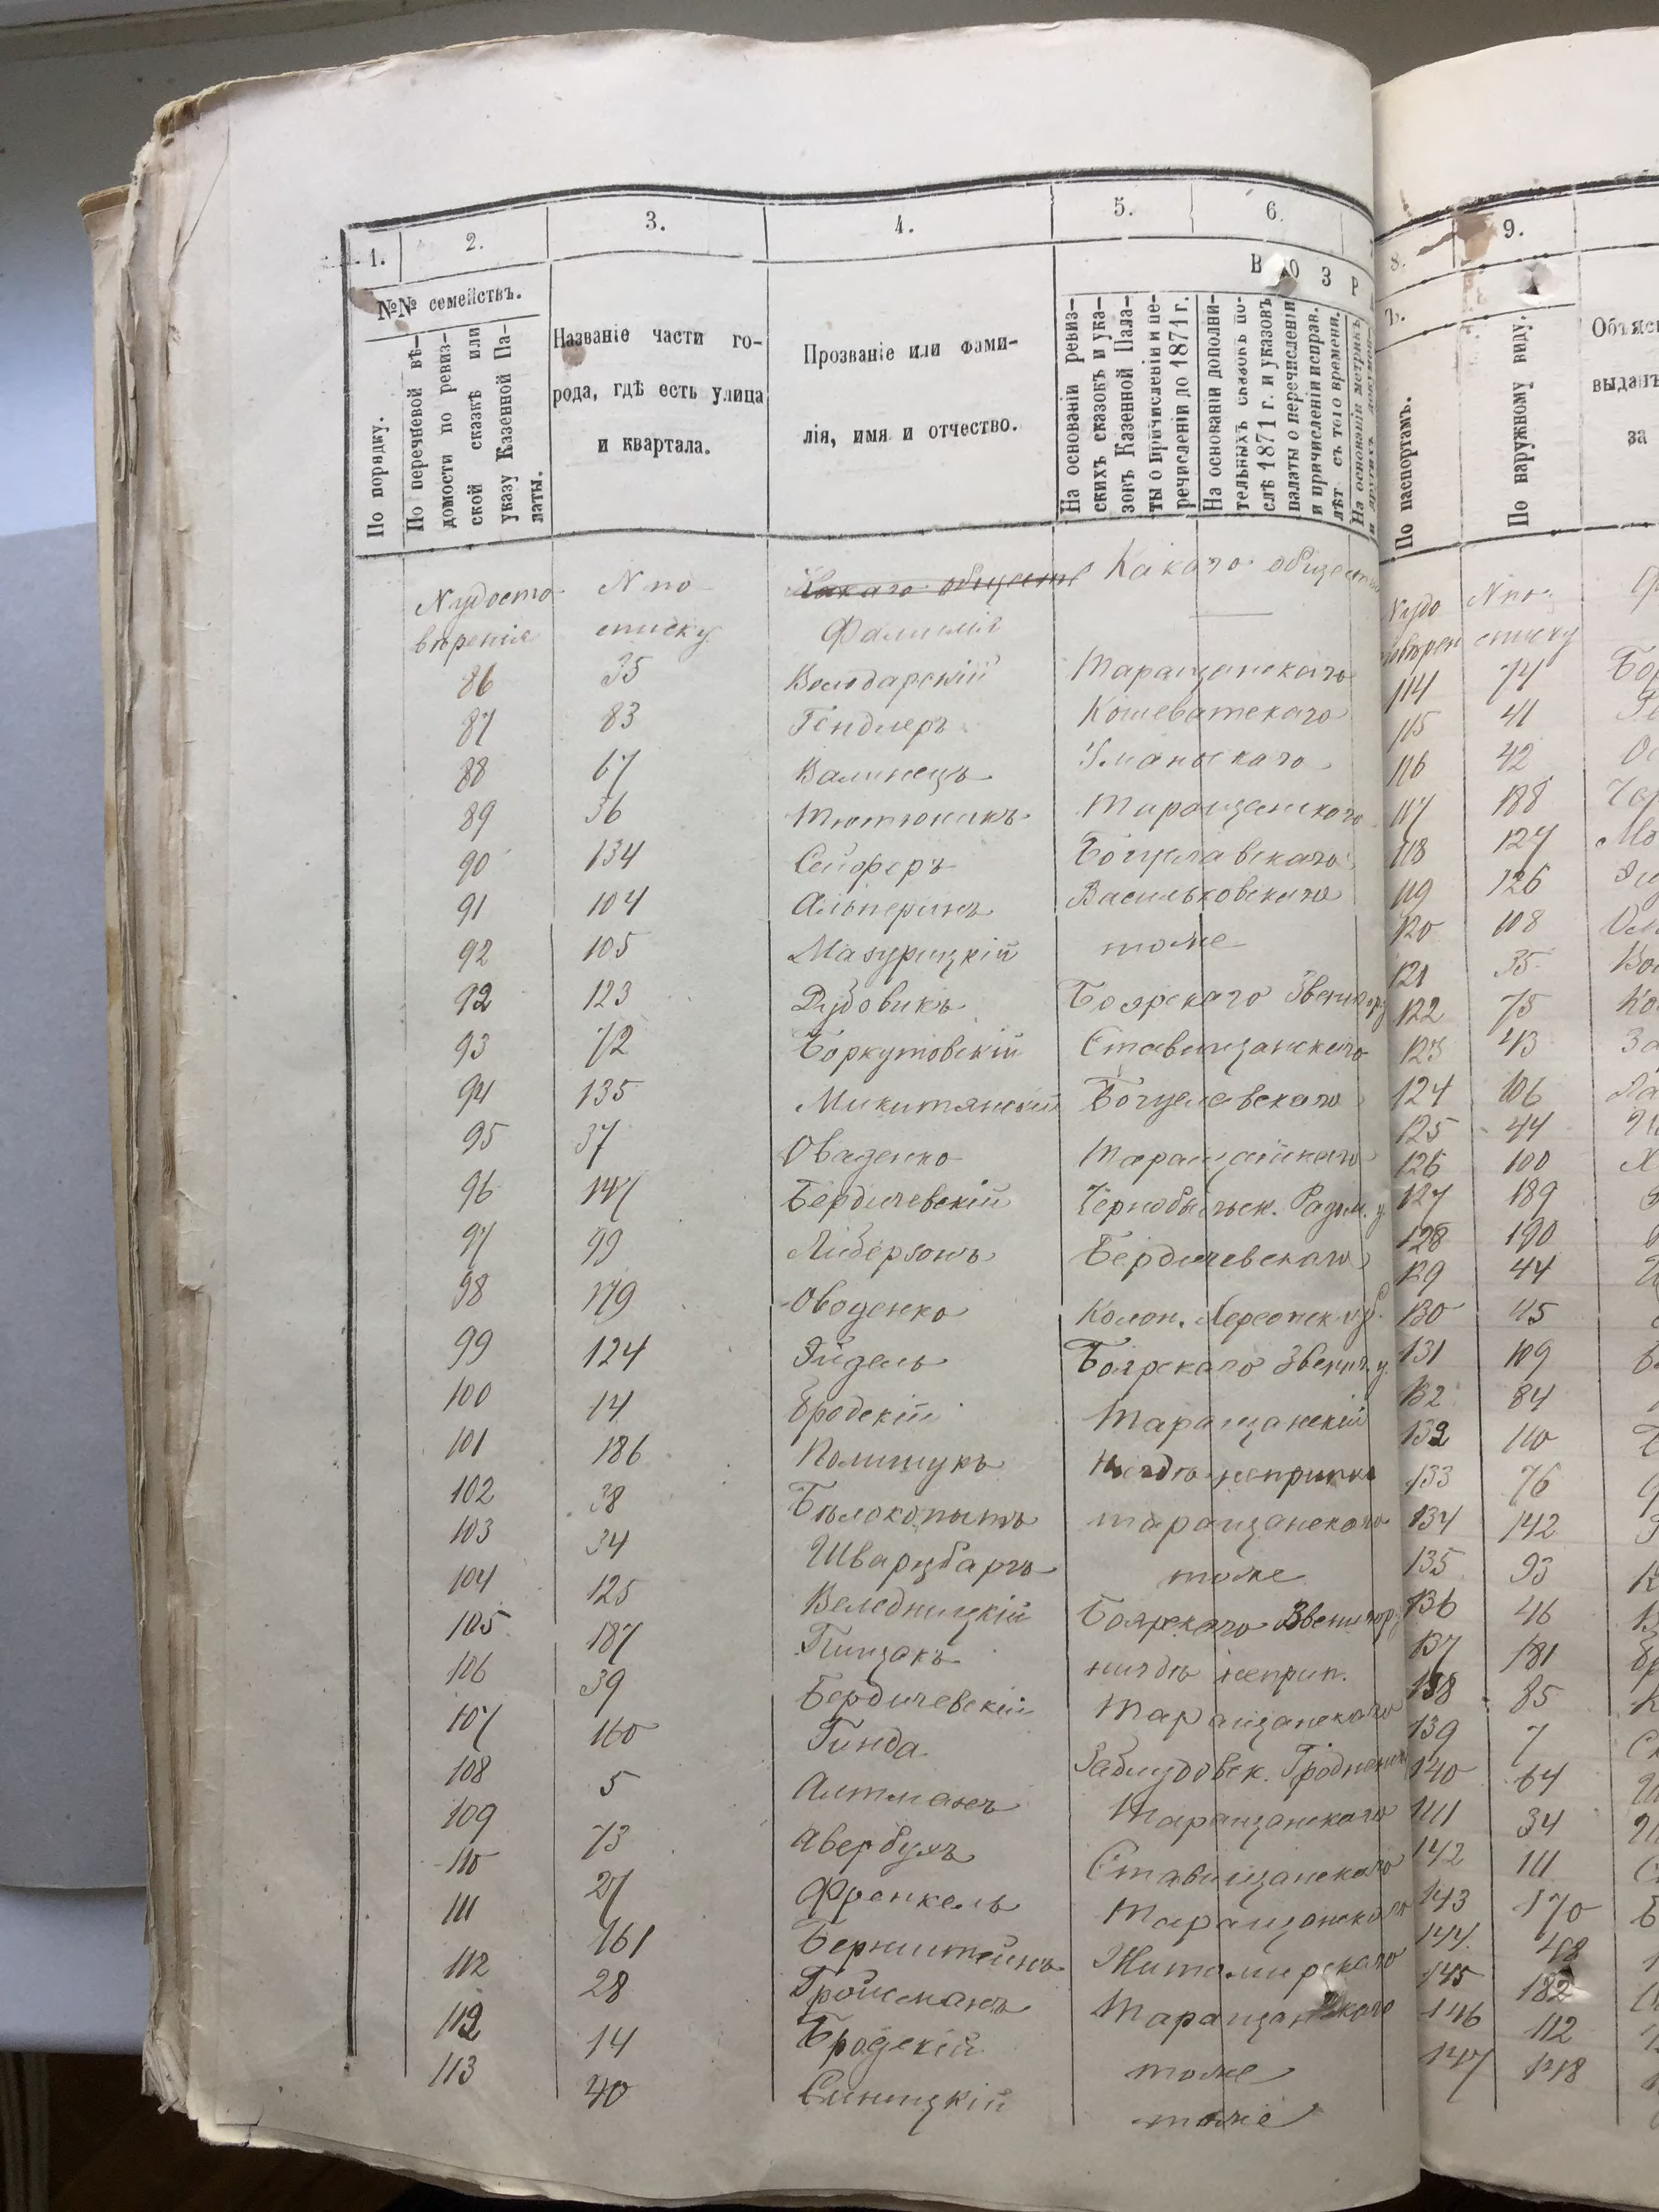 1. 2. 3. 4. 5. 6.
№№ семействъ.
В О З Р
По порядку.
По перечневой вѣ-
домости по ревиз-
ской сказкѣ или
указу Казенной Па-
латы.
Названіе части го-
рода, гдѣ есть улица
и квартала.
Прозваніе или фами-
лія, имя и отчество.
На основаніи ревиз-
скихъ сказокъ и ука-
зовъ Казенной Пала-
ты о причисленіи и пе-
речисленіи до 1871 г.
На основаніи дополни-
тельныхъ сказокъ по-
слѣ 1871 г. и указовъ
палаты о перечисленіи
и причисленіи исправ.
лѣт. съ того времени.
На основаніи метрикъ
N удосто- N по Какаго обществ Какаго общес
вѣренія списку Фамилія
86 35 Володарскій Таращанскаго
87 83 Гендлеръ Кошеватскаго
88 67 Валинецъ Уманскаго
89 36 Тютюникъ Таращанскаго
90 134 Сейферъ Богуславскаго
91 104 Альперинъ Васильковскаго
92 105 Мазурицкій тоже
92 123 Дудовикъ Боярскаго Звениг
93 72 Боркутовскій Ставищанскаго
94 135 Микитянскій Богуславскаго
95 37 Оваденко Таращанскаго
96 147 Бердичевскій Чернобыльск. Радом. у
97 99 Либерзонъ Бердичевскаго
98 179 Оваденко Колон. Херсонск. губ.
99 124 Айзель Боярскаго Звениг. у.
100 14 Бродскій Таращанскій
101 186 Полищукъ Нигдѣ неприпис
102 38 Бѣлокопытъ таращанскаго
103 34 Шварцбаргъ тоже
104 125 Веледницкій Боярскаго Звенигор
105 187 Пищакъ нигдѣ неприп.
106 39 Бердичевскій Таращанскаго
107 160 Гинда Заблудовск. Гродненск
108 5 Алтманъ Таращанскаго
109 73 Авербухъ Ставищанскаго
110 27 Френкель Таращанскаго
111 161 Бернштейнъ Житомирскаго
112 28 Гройсманъ Таращанскаго
112 14 Бродскій тоже
113 40 Синицкій тоже
8. 9.
ъ.
По паспортамъ.
По наружному виду.
Объяс
выданъ
за
N удо N по
вѣрен списку
114 74 Бор
115 41
116 42
117 188
118 127 Мо
119 126
120 108
121 35
122 75
123 43 За
124 106
125 44
126 100
127 189
128 190
129 44
130 45
131 109
132 84
132 110
133 76
134 142
135 93
136 46
137 181
138 85
139 7
140 64
141 34
142 111
143 170
144 48
145 182
146 112
147 148